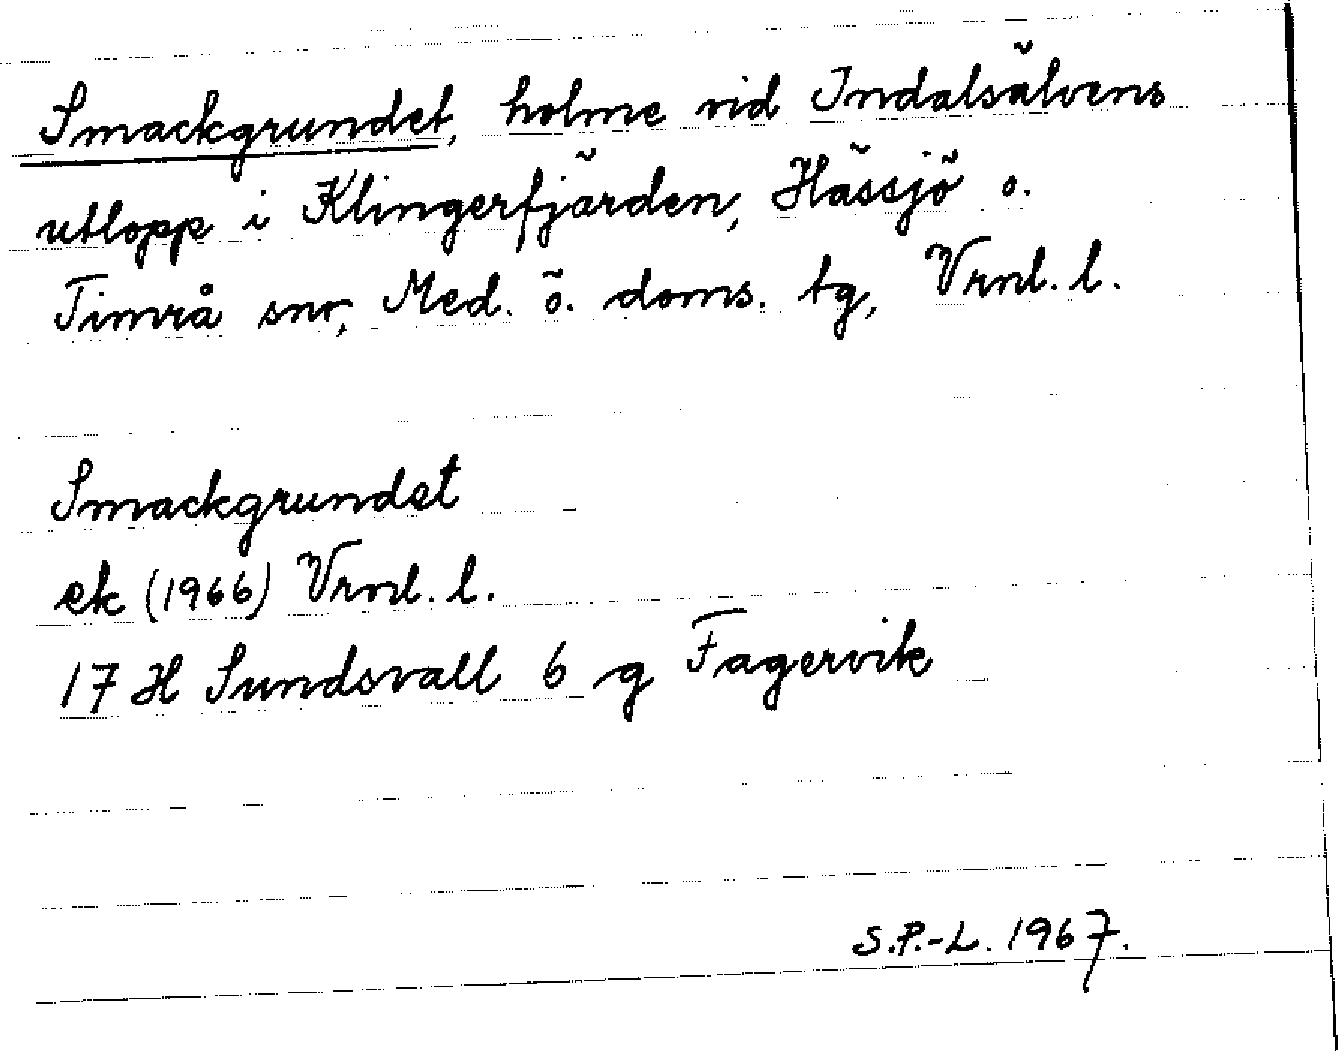 Smackgrundet, holme vid Indalsälvens
utlopp i Klingerfjärden, Hässjö o.
Timrå snr, Med. ö. doms. tg, Vrnl. l.
Smackgrundet
ek (1966) Vrnl. l.
17 H Sundsvall 6 g Fagervik
S.P.-L. 1967.